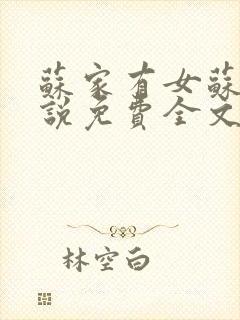 蘇家有女蘇
說免費全文
林空白